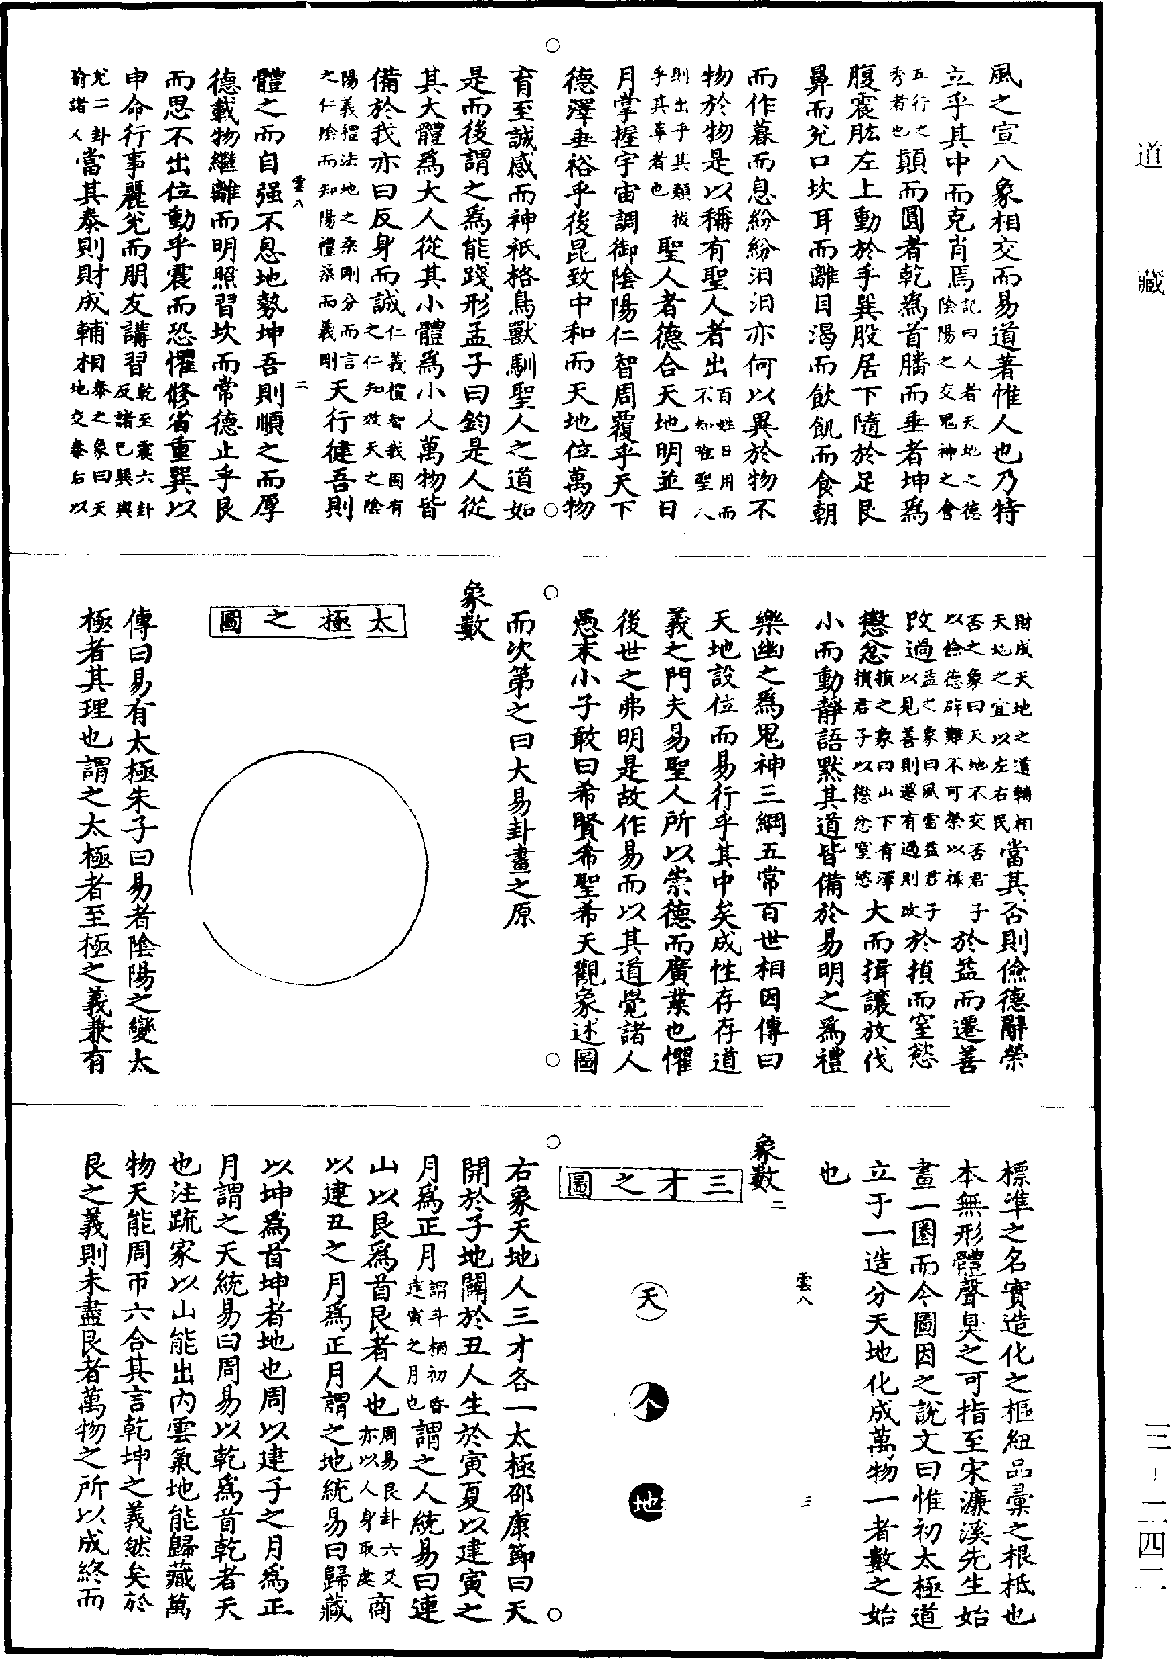 道藏
三—二四二
風之宣八象相交而易道著惟人也乃特
立乎其中而克肖焉記曰人者天地之德陰陽之交鬼神之會
五行之秀者也顛而圓者乾爲首膰而垂者坤爲
腹震肱左上動於手巽股居下隨於足艮
鼻而兊口坎耳而離目渴而飲飢而食朝
而作暮而息紛紛汨汨亦何以異於物不
物於物是以稱有聖人者出百姓日用而不知唯聖人
則出乎其類拔乎其萃者也聖人者德合天地明並日
月掌握宇宙調御陰陽仁智周覆乎天下
德澤垂裕乎後昆致中和而天地位萬物
育至誠感而神祇格鳥獸馴聖人之道如
是而後謂之爲能踐形孟子曰鈞是人從
其大體爲大人從其小體爲小人萬物皆
備於我亦曰反身而誠仁義禮智我固有之仁知效天之陰
陽義禮法地之柔剛分而言之仁陰而知陽禮柔而義剛天行健吾則
雲八
二
體之而自强不息地勢坤吾則順之而厚
德載物繼離而明照習坎而常德止乎艮
而思不出位動乎震而恐懼修省重巽以
申命行事麗兊而朋友講習乾至震六卦反諸己巽與
兊二卦喻諸人當其泰則財成輔相泰之象曰天地交泰后以
財成天地之道輔相天地之宜以左右民當其否則儉德辭榮
否之象曰天地不交否君子以儉德辟難不可榮以祿於益而遷善
改過益之象曰風雷益君子以見善則遷有過則改於損而窒慾
懲忿損之象曰山下有澤損君子以懲忿窒慾大而揖讓放伐
小而動靜語默其道皆備於易明之爲禮
樂幽之爲鬼神三綱五常百世相因傳曰
天地設位而易行乎其中矣成性存存道
義之門夫易聖人所以崇德而廣業也懼
後世之弗明是故作易而以其道覺諸人
愚末小子敢曰希賢希聖希天觀象述圖
而次第之曰大易卦畫之原
象數
太極之圖
傳曰易有太極朱子曰易者陰陽之變太
極者其理也謂之太極者至極之義兼有
標準之名實造化之樞紐品彙之根柢也
本無形體聲臭之可指至宋濂溪先生始
畫一圈而今圖因之說文曰惟初太極道
立于一造分天地化成萬物一者數之始
也
雲八
三
象數二
三才之圖
天
人
地
右象天地人三才各一太極邵康節曰天
開於子地闢於丑人生於寅夏以建寅之
月爲正月謂斗柄初昏建寅之月也謂之人統易曰連
山以艮爲首艮者人也周易艮卦六爻亦以人身取象商
以建丑之月爲正月謂之地統易曰歸藏
以坤爲首坤者地也周以建子之月爲正
月謂之天統易曰周易以乾爲首乾者天
也注疏家以山能出內雲氣地能歸藏萬
物天能周帀六合其言乾坤之義然矣於
艮之義則未盡艮者萬物之所以成終而